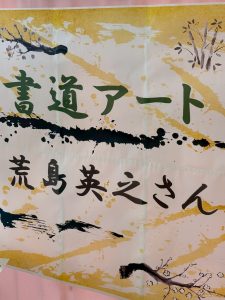 書道アート
荒島英之さん